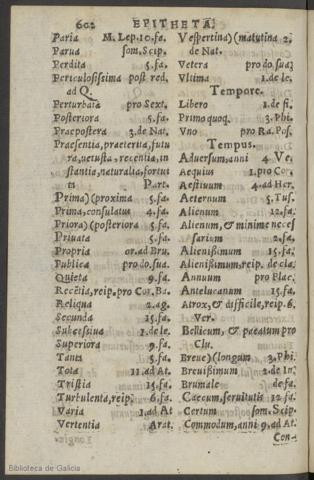 602 EPITHETA.
Paria M. Lep. 10. fa.
Parua som. Scip.
Perdita 5. fa.
Periculosissima post red.
ad Q.
Perturbata pro Sext.
Posteriora 5. fa.
Praepostera 3. de Nat.
Praesentia, praeterita, futu
ra, uetusta, recentia, in
stantia, naturalia, fortui
ti Part.
Prima) (proxima 5. fa.
Prima, consulatus 4. fa.
Priora) (posteriora 5. fa.
Priuata 5. fa.
Propria or. ad Bru.
Publica pro do. sua.
Quieta 9. fa.
Recētia, reip. pro Cor. Ba.
Reliqua 2. ag.
Secunda 15. fa.
Successius 1. de le.
Superiora 9. fa.
Tanti 5. fa.
Tota 11. ad At.
Tristia 15. fa.
Turbulenta, reip. 6. fa.
Varia 1. ad At
Vertentia Arat.
Vespertina) (matutina 2.
de Nat.
Vetera pro do. sua.
Vltima 1. de le.
Tempore.
Libero 1. de fi.
Primo quoq. 3. Phi.
Vno pro Ra. Pos.
Tempus.
Aduersum, anni 4 Ve.
Aequius 1. pro Cor.
Aestiuum 4. ad Her.
Aeternum 5. Tus.
Alienum 12. fa.
Alienum, & minime neces
sarium 2. fa.
Alienißimum 15. fa.
Alienißimum, reip. de cla.
Annuum pro Plac.
Antelucanum 15. fa.
Atrox, & difficile, reip. 6.
Ver.
Bellicum, & pacatum pro
Clu.
Breue) (longum 3. Phi.
Breuißimum 2. de In.
Brumale de fa.
Caecum, seruitutis 12 fa.
Certum som. Scip.
Commodum, anni 9. ad At
Con-
Biblioteca de Galicia